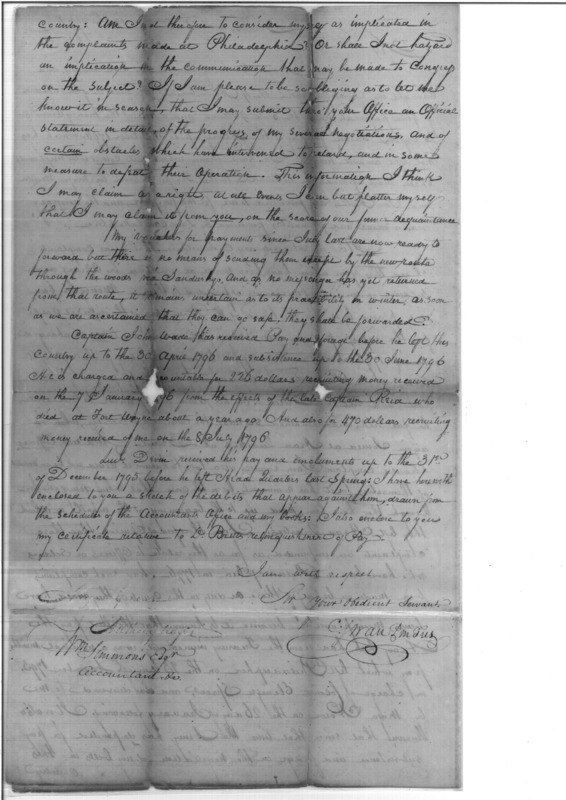 country: Am I not therefore to consider myself as implicated in
the complaints made at Philadelphia? Or shall I not hazard
an implication in the communication that may be made to Congress
on the subject? If I am please to be so obliging as to let me
know it in season, that I may submit to your Office an Official
statement in detail, of the progress of my several negotiations, and of
certain obstacles which have intervened to retard, and in some
measure to defeat their Operation. This information I think
I may claim as a right, at all events I can but flatter myself
that I may claim it from you, on the score of our former acquaintance
My vouchers for payments since July last are now ready to
forward but there is no means of sending them except by the new route
through the woods via Sandusky, and as no messenger has yet returned
from that route, it remains uncertain as to its practibility in winter, as soon
as we are ascertained that they can go safe, they shall be forwarded
Captain John Wade has received Pay and forage before he left this
country up to the 30 April 1796 and subsistence up to the 30 June 1796
He is charged and accountable for 226 dollars recruiting money received
on the 7 January 1796 from the effects of the late Captain Reid who
died at Fort Wayne about a year ago. And also for 470 dollars recruiting
money received of me on the 8 July 1796
Lieut received his pay and emoluments up to the 31st
of December 1795 before he left Head Quarters last Spring: I have herewith
enclosed to you a sketch of the debits that appear against him, drawn from
the schedules of the Accountants Office and my books: I also enclose to you
my certificate relative to Lt relinquishment of Pay
I am with respect
Sir Your Obedient Servant
C Swan P M Gus
Wm Simmons Esqr
Accountant &c